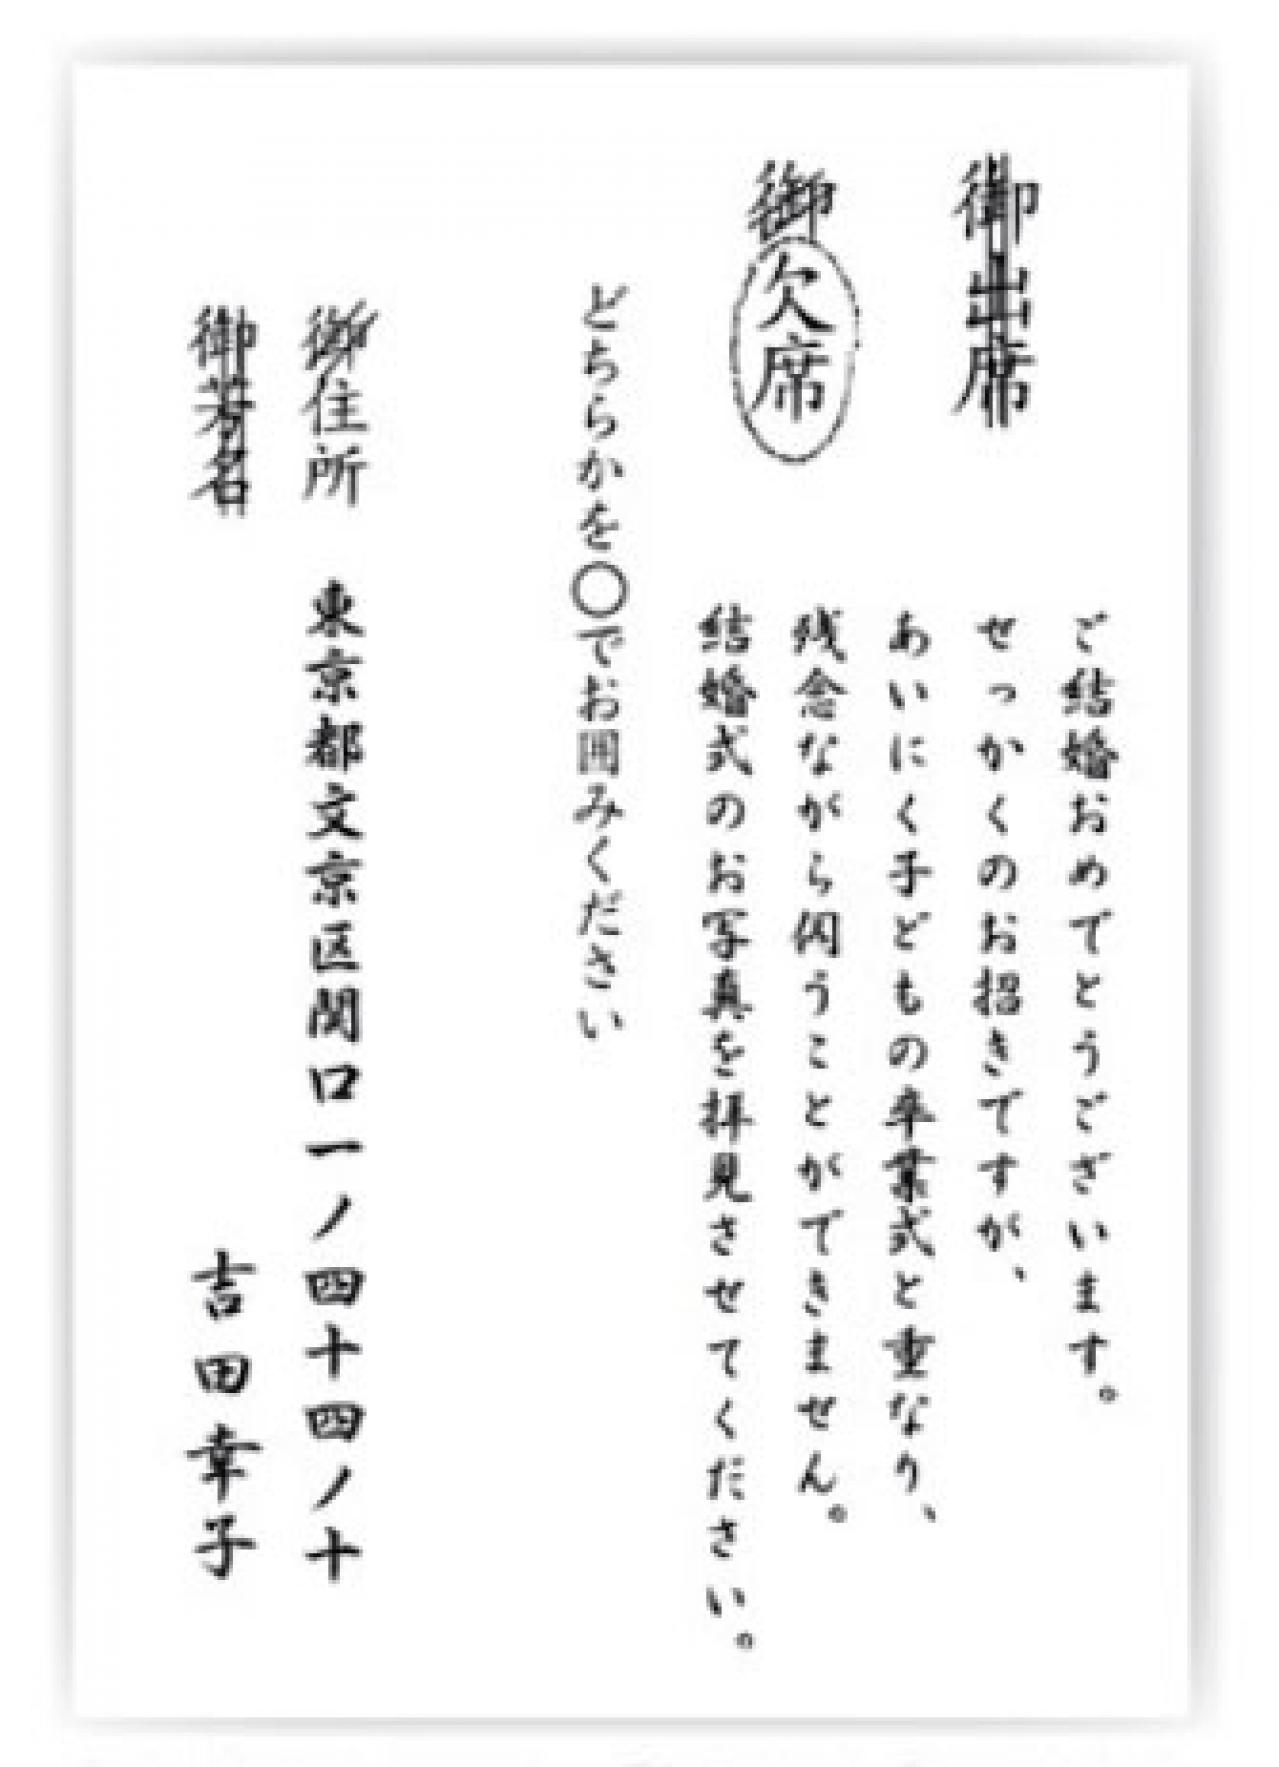 御出席
ご結婚おめでとうございます。
せっかくのお招きですが、
あいにく子どもの卒業式と重なり、
残念ながら伺うことができません。
結婚式のお写真を拝見させてください。
御欠席
どちらかを○でお囲みください
御住所 東京都文京区関口一ノ四十四ノ十
御芳名 吉田幸子